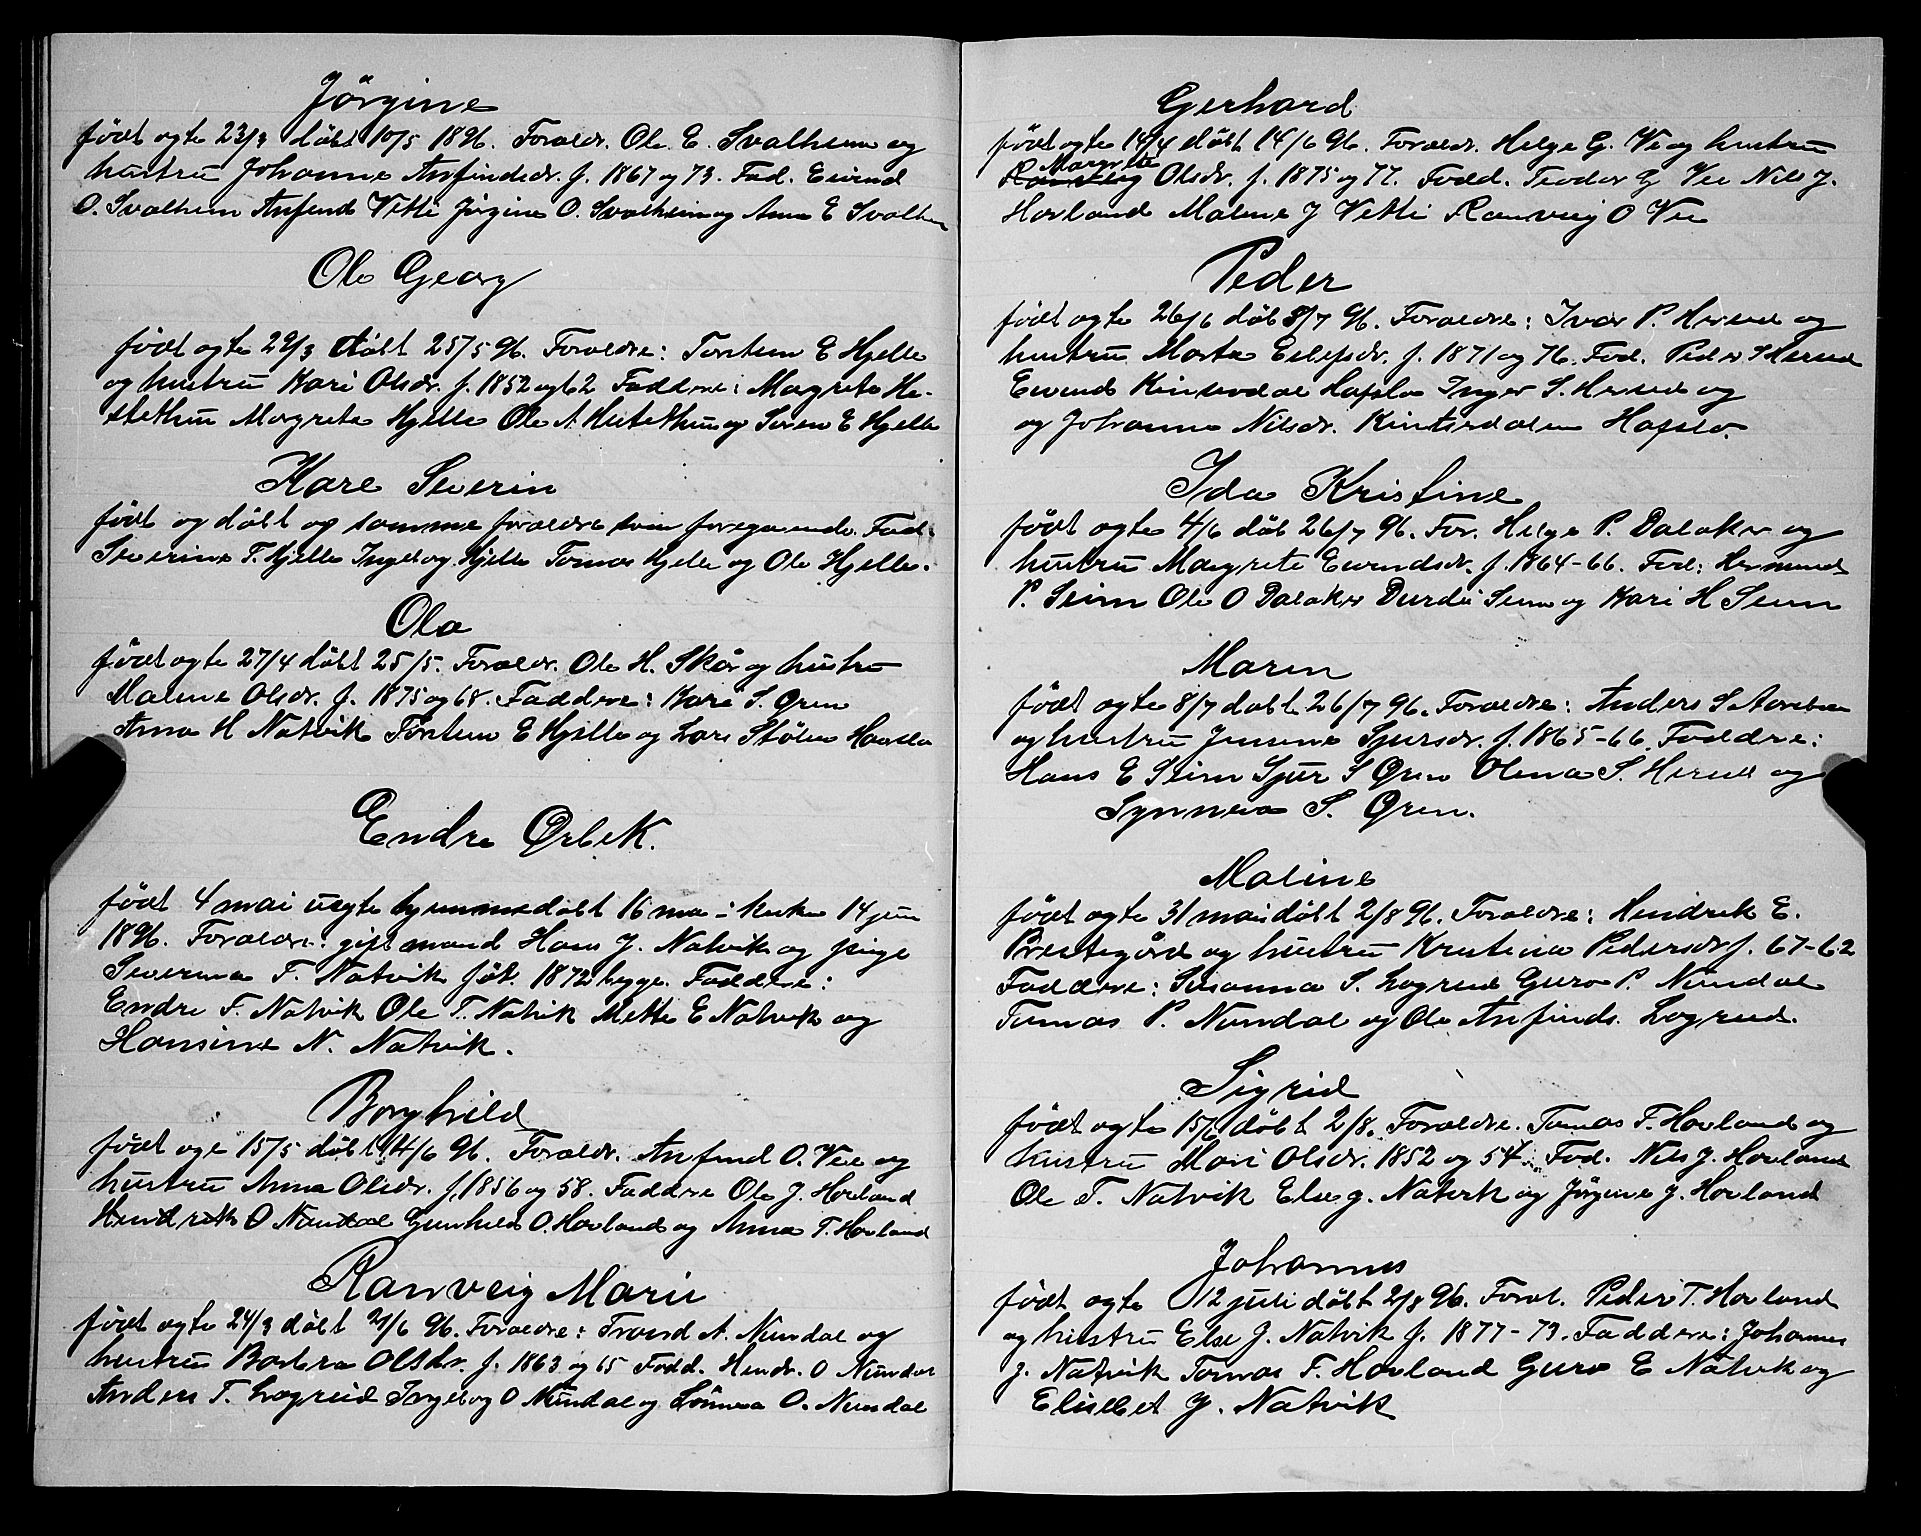 Jörgine
födt egte 23/3 döbt 10/5 1896. Foreldr. Ole E. Svalheim og
hustru Johanne Anfindsdr. f. 1867 og 73. Fad. Eivind
O. Svalheim Anfind Vetti Jörgine O. Svalheim og Anna E Svalheim
Ole Georg
födt egte 29/3 döbt 25/5 96. Foreldre: Torstein E Hjelle
og hustru Kari Olsdr. f. 1852 og 62 Faddere: Magrete He-
stethun Margrete Hjelle Ole A Hestethun og Sören E Hjelle
Kare Severin
födt og döbt og samme foreldre som foregaaende. Fad.
Severine T. Hjelle Ingeborg Hjelle Tomas Hjelle og Ole Hjelle.
Ola
födt egte 27/4 döbt 25/5. Foreldr. Ole H. Skår og hustru
Malene Olsdr. f. 1875 og 68. Faddere: Kari S. Gren
Anna H Natvik Torstein E Hjelle og Lars Stölen Hafslo
Endre Örbek.
födt 4 mai uegte hjemmedöbt 16 mai i kirken 14 juni
1896. Foreldre: gift mand Hans J. Natvik og pige
Severina T. Natvik föt. 1872 begge. Faddere:
Endre T. Natvik Ole T. Natvik Mette E Natvik og
Hansine N. Natvik.
Borghild
födt ege 15/5 döbt 14/6 96. Foreldr. Anfind O. Vee og
hustru Anna Olsdr. f. 1856 og 58. Faddere Ole J. Hovland
Hendrik O Nundal Gunhild O. Hovland og Anna T. Hovland
Ranveig Marie
födt egte 24/3 döbt 21/6 96. Foreldre: Trond A. Nundal og
hustru Barbra Olsdr. f. 1863 og 65 Fadd. Hendr. O Nundal
Anders T. Lægreid Ingeborg O Nundal og Sönneva O. Nundal
Gerhard
födt egte 14/4 döbt 14/6 96. Foreldr. Helge G. Ve og hustru
Margrete
Ranveig Olsdr. f. 1875 og 77. Fadd. Teodor G Vee Nils J.
Hovland Malene J Vetti Ranveig O Vee
Peder
födt egte 26/6 döb 8/7 96. Foreldre: Ivar P. Hereid og
hustru Marta Eilefsdr. f. 1871 og 76. Fad. Peder I Hereid
Eivind Kinserdal Hafslo Inger S. Hereid og
og Johanna Nilsdr. Kintserdalen Hafslo.
Ida Kristine
födt egte 4/6 döb 26/7 96. For. Helge P. Dalaker og
hustru Magrete Eivindsdr. f. 1864-66. Fad: Hermund
P. Seim Ole O Dalaker Durdei Seim og Kari H Seim
Maren
födt egte 8/7 döbt 26/7 96. Foreldre: Anders S Asreheim
og hustru Jensene Sjursdr. f. 1865-66. Faddre:
Hans E Seim Sjur S Gren Olena S. Hereid og
Synneva S. Gren.
Maline
födt egte 31 mai döbt 2/8 96. Foreldre: Hendrik E.
Prestegård og hustru Kristina Pedersdr f. 67-62
Faddere: Susanna S. Lægreid Guro P. Nundal
Tomas P. Nundal og Ole Anfinds. Lægreid.
Sigrid
födt egte 15/6 döbt 2/8. Foreldre. Tomas T. Hovland og
hustru Mari Olsdr. 1852 og 54. Fad. Nils J. Hovland
Ole T. Natvik Else J. Natvik og Jörgine J. Hovland
Johannes
födt egte 12 juli döbt 2/8 96. Forel. Peder T. Hovland
og hustru Else J. Natvik f. 1877-73. Faddere: Johannes
J. Natvik Tomas T. Hovland Guro E Natvik og
Elisebet J. Natvik